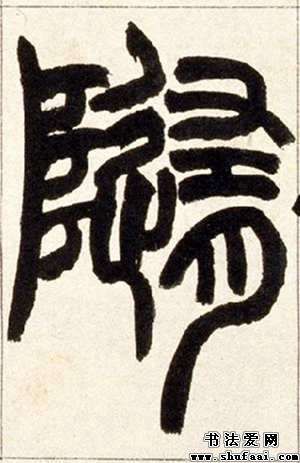 隨
书法爱网
www.shufaai.com